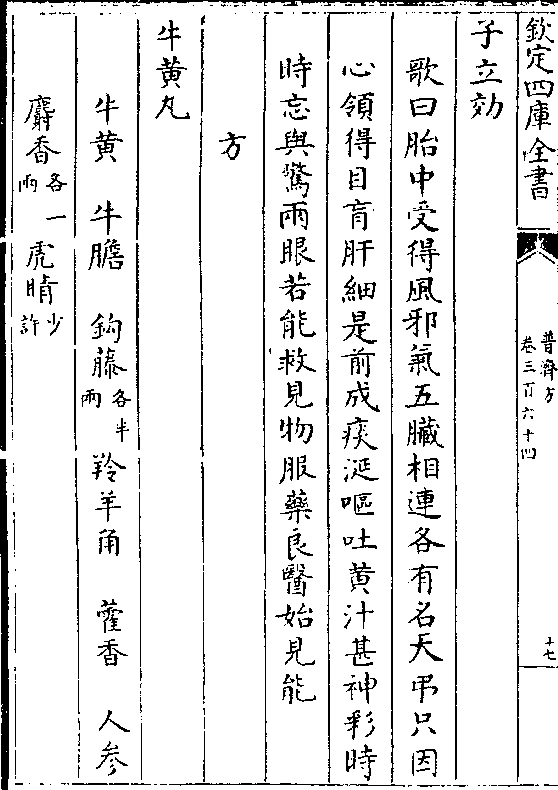 欽定四庫全書
普濟方
卷三百六十四
十七
子立効
歌曰胎中受得風邪氣五臟相連各有名天弔只因
心領得目肓肝細是前成痰涎嘔吐黄汁甚神彩時
時忘與驚兩眼若能救見物服藥良醫始見能
方
牛黄丸
牛黄 牛膽 鈎藤各半兩羚羊角 藿香 人参
麝香各一兩 虎睛少許